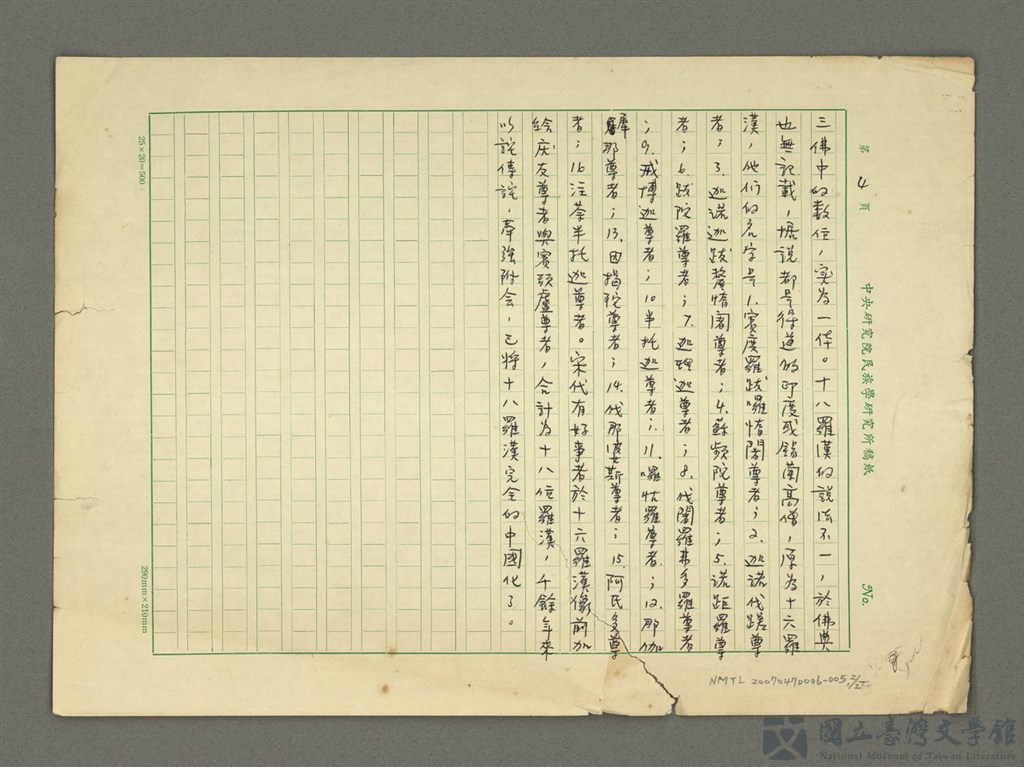 第 4 頁
中央研究院民族學研究所稿紙
No.
三佛中的數位，實為一体。十八羅漢的說法不一，於佛典
也無記載，據說都是得道的印度或錫蘭高僧，原為十六羅
漢，他們的名字是1.賓度羅跋囉惰闍尊者；2.迦諾伐蹉尊
者；3.迦諾迦跋釐惰闍尊者；4.蘇頻陀尊者；5.諾距羅尊
者；6.跋陀羅尊者；7.迦理迦尊者；8.伐闍羅弗多羅尊者
；9.戒博迦尊者；10半托迦尊者；11.囉怙羅尊者；12.那伽
犀那尊者；13.因揭陀尊者；14.伐那婆斯尊者；15.阿氏多尊
者；16注荼半托迦尊者。宋代有好事者於十六羅漢像前加
繪庆友尊者與賓頭盧尊者，合計為十八位羅漢，千餘年來
以訛傳訛，牽強附会，已將十八羅漢完全的中國化了。
25×20=500
290mm×210mm
NMTL 20070470006-005
國立臺灣文學館
National Museum of Taiwan Literature